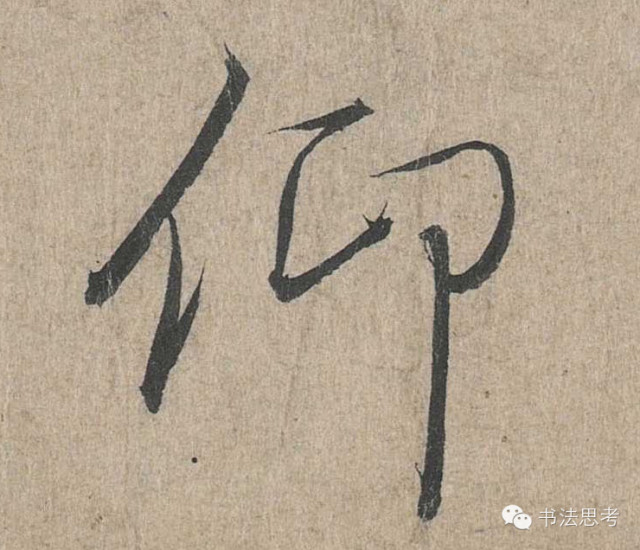 仰
书法思考